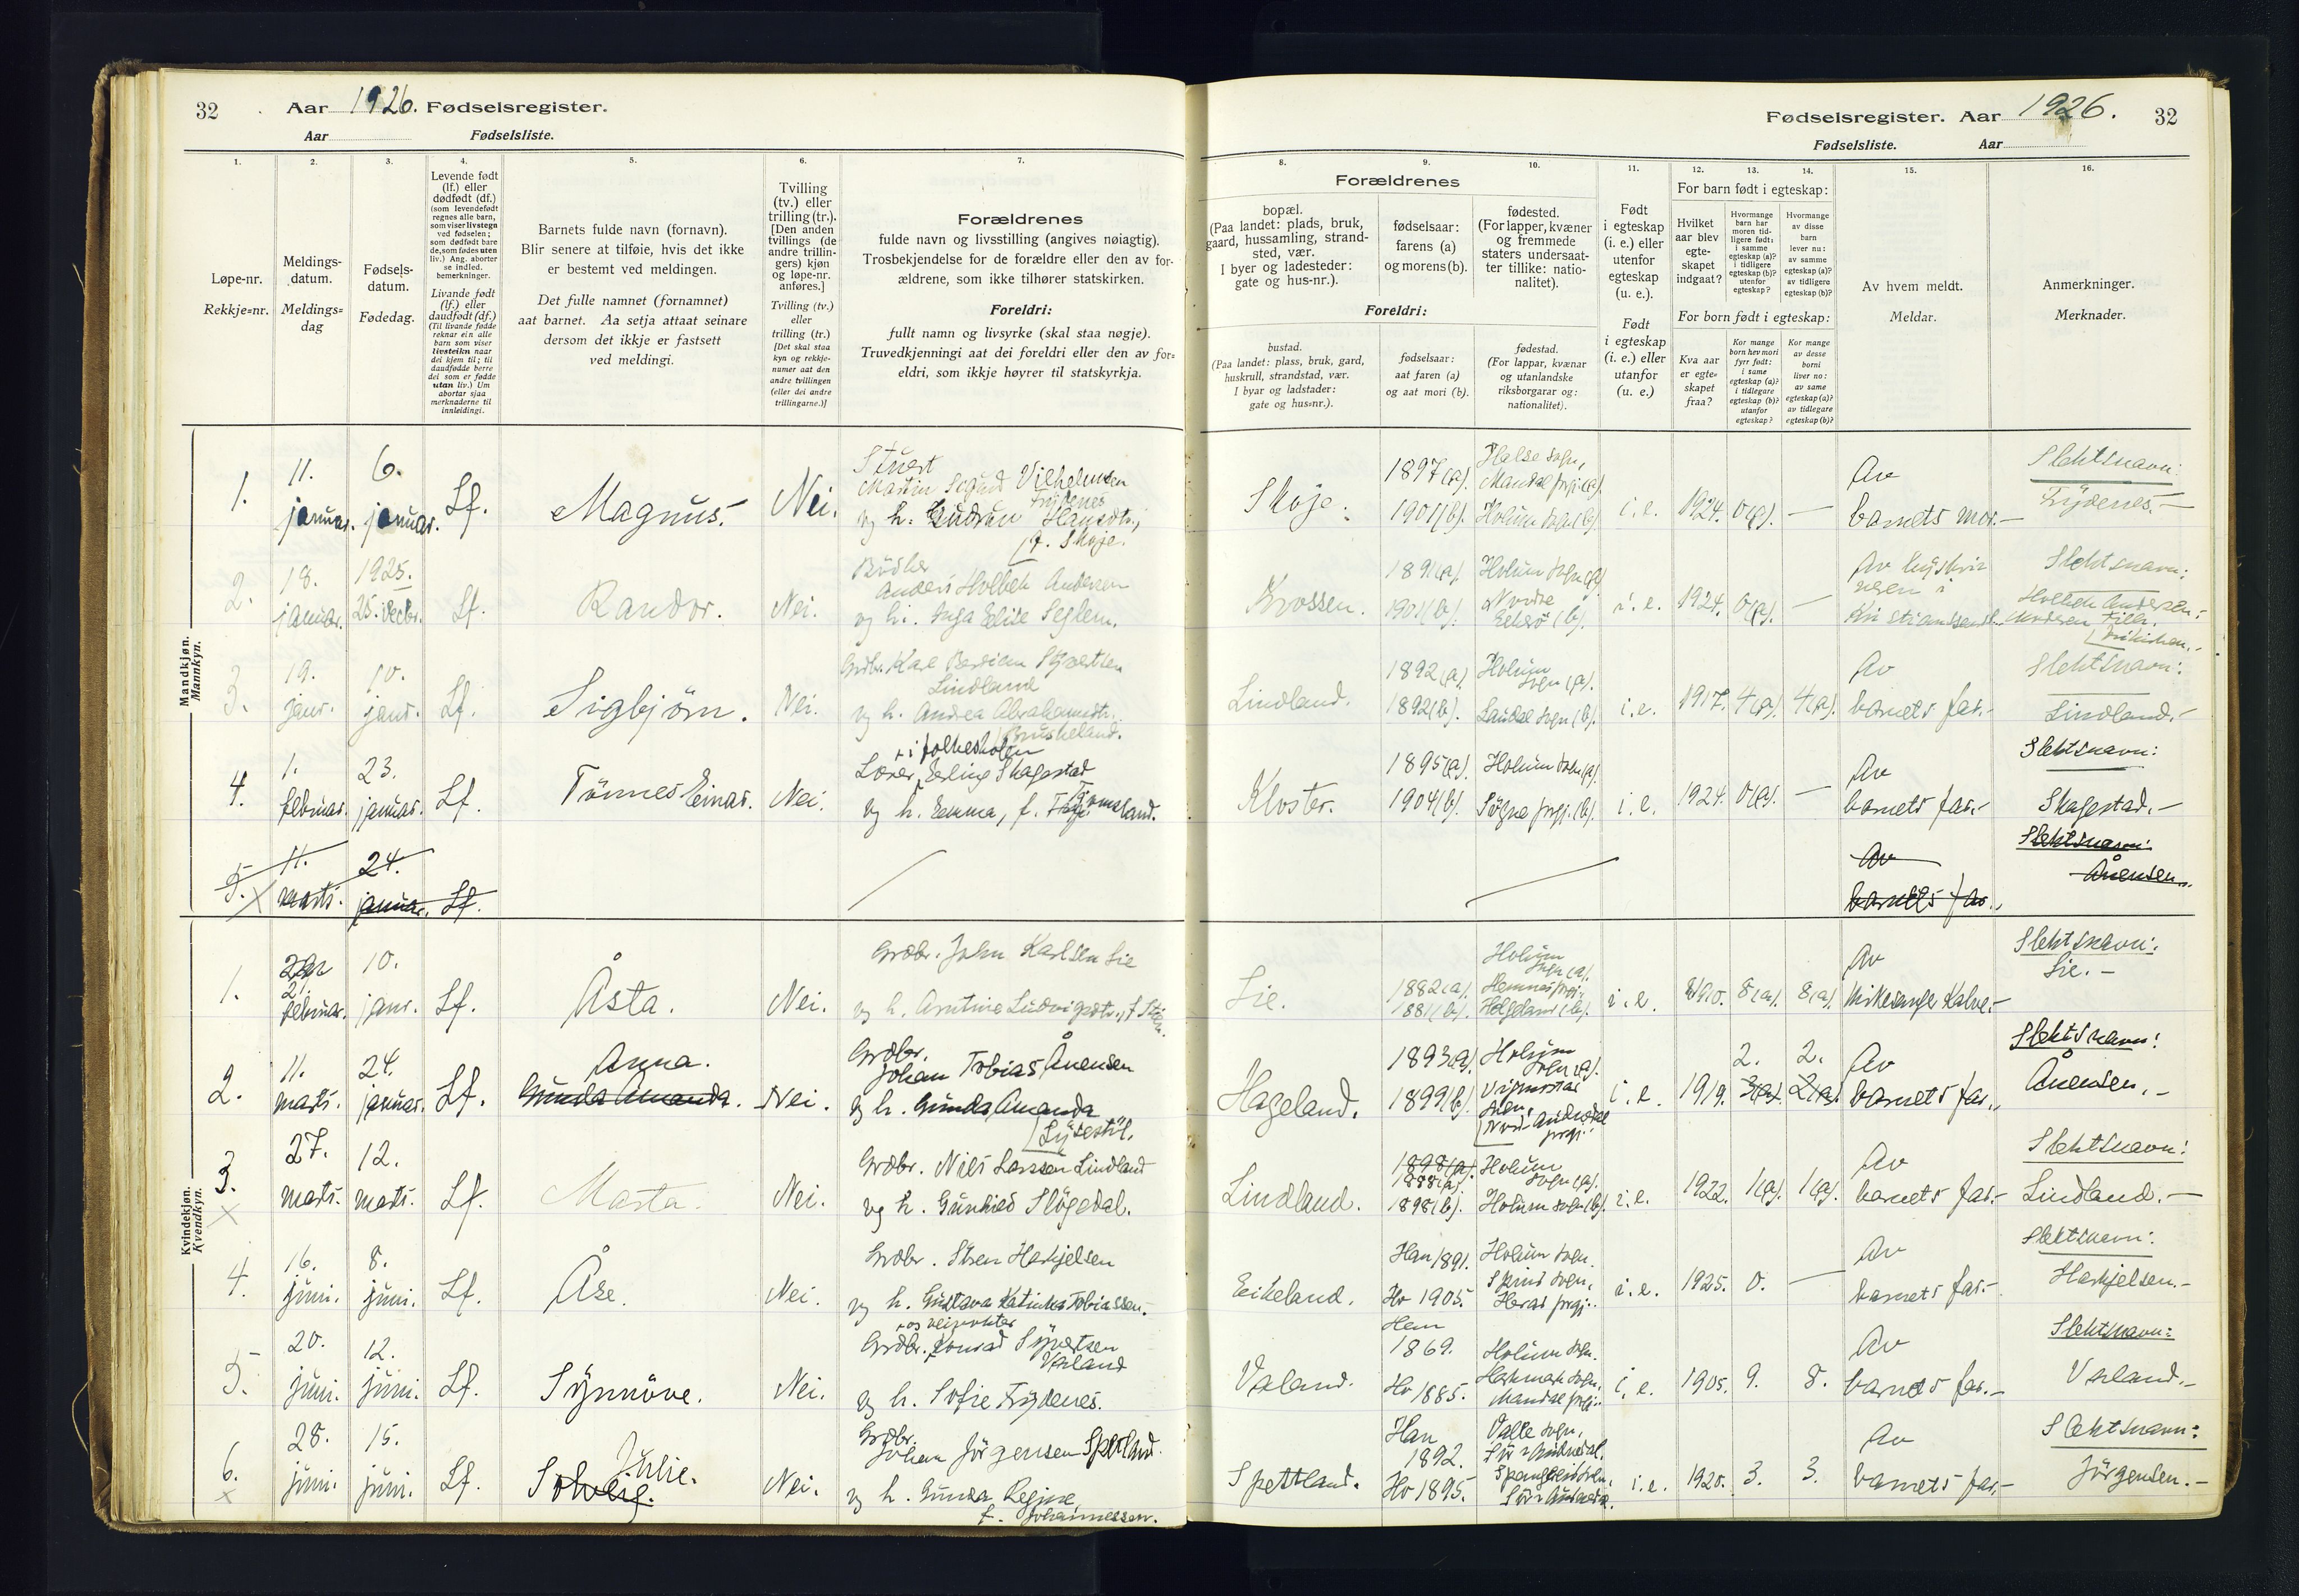 32 Aar 1926. Fødselsregister.
Aar Fødselsliste.
Fødselsregister. Aar 1926. 32
Fødselsliste. Aar
1.
Løpe-nr.
Rekkje-nr.
2.
Meldings-
datum.
Meldings-
dag
3.
Fødsels-
datum.
Fødedag.
4.
Levende født
(lf.) eller
dødfødt (df.)
(som levendefødt
regnes alle barn,
som viser livstegn
ved fødselen;
som dødfødt bare
de, som fødes uten
liv.) Ang. aborter
se indled.
bemerkninger.
Livande født
(lf.) eller
daudfødt (df.)
(Til livande fødde
reknar ein alle
barn som viser
livsteikn naar
dei kjem til; til
daudfødde berre
dei som er fødde
utan liv.) Um
abortar sjaa
merknaderne til
innleidingi.
5.
Barnets fulde navn (fornavn).
Blir senere at tilføie, hvis det ikke
er bestemt ved meldingen.
Det fulle namnet (fornamnet)
aat barnet. Aa setja attaat seinare
dersom det ikkje er fastsett
ved meldingi.
6.
Tvilling
(tv.) eller
trilling (tr.).
[Den anden
tvillings (de
andre trillin-
gers) kjøn
og løpe-nr.
anføres.]
Tvilling (tv.)
eller
trilling (tr.)
[Det skal staa
kyn og rekkje-
numer aat den
andre tvillingen
(eller dei andre
trillingarne.)]
7.
Forældrenes
fulde navn og livsstilling (angives nøiagtig).
Trosbekjendelse for de forældre eller den av for-
ældrene, som ikke tilhører statskirken.
Foreldri:
fullt namn og livsyrke (skal staa nøgje).
Truvedkjenningi aat dei foreldri eller den av for-
eldri, som ikkje høyrer til statskyrkja.
Forældrenes
8.
bopæl.
(Paa landet: plads, bruk,
gaard, hussamling, strand-
sted, vær.
I byer og ladesteder:
gate og hus-nr.).
9.
fødselsaar:
farens (a)
og morens (b).
10.
fødested.
(For lapper, kvæner
og fremmede
staters undersaat-
ter tillike: natio-
nalitet).
Foreldri:
bustad.
(Paa landet: plass, bruk, gard,
huskrull, strandstad, vær.
I byar og ladstader:
gate og hus-nr.).
fødselsaar:
aat faren (a)
og aat mori (b).
fødestad.
(For lappar, kvænar
og utanlandske
riksborgarar og:
nationalitet).
11.
Født
i egteskap
(i. e.) eller
utenfor
egteskap
(u. e.).
Født
i egteskap
(i. e.) eller
utanfor
(u. e.)
12. 13. 14.
For barn født i egteskap:
Hvilket
aar blev
egte-
skapet
indgaat?
Hvormange
barn har
moren tid-
ligere født:
i samme
egteskap (a)?
i tidligere
egteskap (b)?
utenfor
egteskap?
Hvormange
av disse
barn
lever nu:
av samme
egteskap (a)?
av tidligere
egteskap (b)?
For born født i egteskap:
Kva aar
er egte-
skapet
fraa?
Kor mange
born hev mori
fyrr født:
i same
egteskap (a)?
i tidlegare
egteskap (b)?
utanfor
egteskap?
Kor mange
av desse
borni
liver no:
av same
egteskap (a)?
av tidlegare
egteskap (b)?
15.
Av hvem meldt.
Meldar.
16.
Anmerkninger.
Merknader.
Mandkjøn.
Mannkyn.
1. 11. januar. 6. januar. Lf. Magnus. Nei.
Martin Sigurd Vilhelmsen
Frydenes
og h. Gudrun Hansdtr.,
f. Skoje.
Skoje. 1897 (a). 1901 (b). Halse sogn, Mandal prgj. (a). Holum sogn (b). i. e. 1924. 0 (a). —
Av barnets mor.— Slektsnavn: Frydenes.—
2. 18. januar. 1925. 25. decbr. Lf. Randor. Nei.
Anders Holbek Andersen
og h. Inga Elise Seglem.
Krossen. 1891 (a). 1901 (b). Holum sogn (a) Nordre (b). i. e. 1924. 0 (a). —
Av i Slektsnavn: Holbek Andersen.
3. 19. janr. 10. janr. Lf. Sigbjörn. Nei.
Grdbr. Karl Sÿvertsen
Lindland
og h. Andrea Abrahamsdtr.
Brusheland.
Lindland. 1892 (a). 1892 (b). Holum sogn (a). Laudal sogn (b). i. e. 1917. 4 (a). 4 (a).
Av barnets far.— Slektsnavn: Lindland.—
4. 1. februar. 23. januar. Lf. Tönnes Einar. Nei.
i folkeskolen
Lærer Erling Skagestad
og h. Emma, f. Tromsland.
Kloster. 1895 (a). 1904 (b). Holum sogn (a). Sögne prgj. (b). i. e. 1924. 0 (a). —
Av barnets far.— Slektsnavn: Skagestad.—
5. 11. marts. 24. januar. Lf.
Av barnets far. Slektsnavn: Ånensen.
Kvindekjøn.
Kvendkyn.
1. 21. februar. 10. janr. Lf. Åsta. Nei.
Grdbr. John Karlsen Lie
og h. Ludvigsdtr.,
Lie. 1882 (a). 1881 (b). Holum sogn (a). Hemnes prgj. Helgeland (b). i. e. 1910. 8 (a). 8 (a).
Av Kirkesanger Kalve.— Slektsnavn: Lie.—
2. 11. marts. 24. januar. Lf. Anna. Gunda Amanda. Nei.
Grdbr.
Johan Tobias Ånensen
og h. Gunda Amanda
Lÿsestöl.
Hageland. 1893 (a). 1899 (b). Holum sogn (a). Vigmostad sogn, Nord-Audnedal prgj. i. e. 1919. 2. 3 (a). 2. 2 (a).
Av barnets far. Slektsnavn: Ånensen.—
3. 27. marts. 12. marts. Lf. Marta. Nei.
Grdbr. Nils Larssen Lindland
og h. Gunhild Slögedal.
Lindland. 1898 (a). 1888 (a). 1898 (b). Holum sogn (a). Holum sogn (b). i. e. 1922. 1 (a). 1 (a).
Av barnets far.— Slektsnavn: Lindland.—
4. 16. juni. 8. juni. Lf. Åse. Nei.
Grdbr. Sören Herkjelsen
og h. Gustava Katinka Tobiassen.
Eikeland. Han 1891. Hv 1905. Holum sogn. Spind sogn, Herad prgj. i. e. 1925. 0. —
Av barnets far.— Slektsnavn: Herkjelsen.—
5. 20. juni. 12. juni. Lf. Sÿnnöve. Nei.
og veivokter
Grdbr. Konrad Sÿvertsen
Valand
og h. Sofie Frÿdenes.
Valand. Han 1869. Hv 1885. Holum sogn. Harkmark sogn, Mandal prgj. i. e. 1905. 9. 8.
Av barnets far.— Slektsnavn: Valand.—
6. 28. juni. 15. juni. Lf. Solveig. Julie. Nei.
Grdbr.
Johan Jörgensen Spetland.
og h. Gunda Regine,
f. Johannessen.
Spettland. Han 1892. Hv 1895. Valle sogn, Sör-Audnedal. Spangereid sogn, Sör-Audnedal. i. e. 1920. 3. 3.
Av barnets far.— Slektsnavn: Jörgensen.—